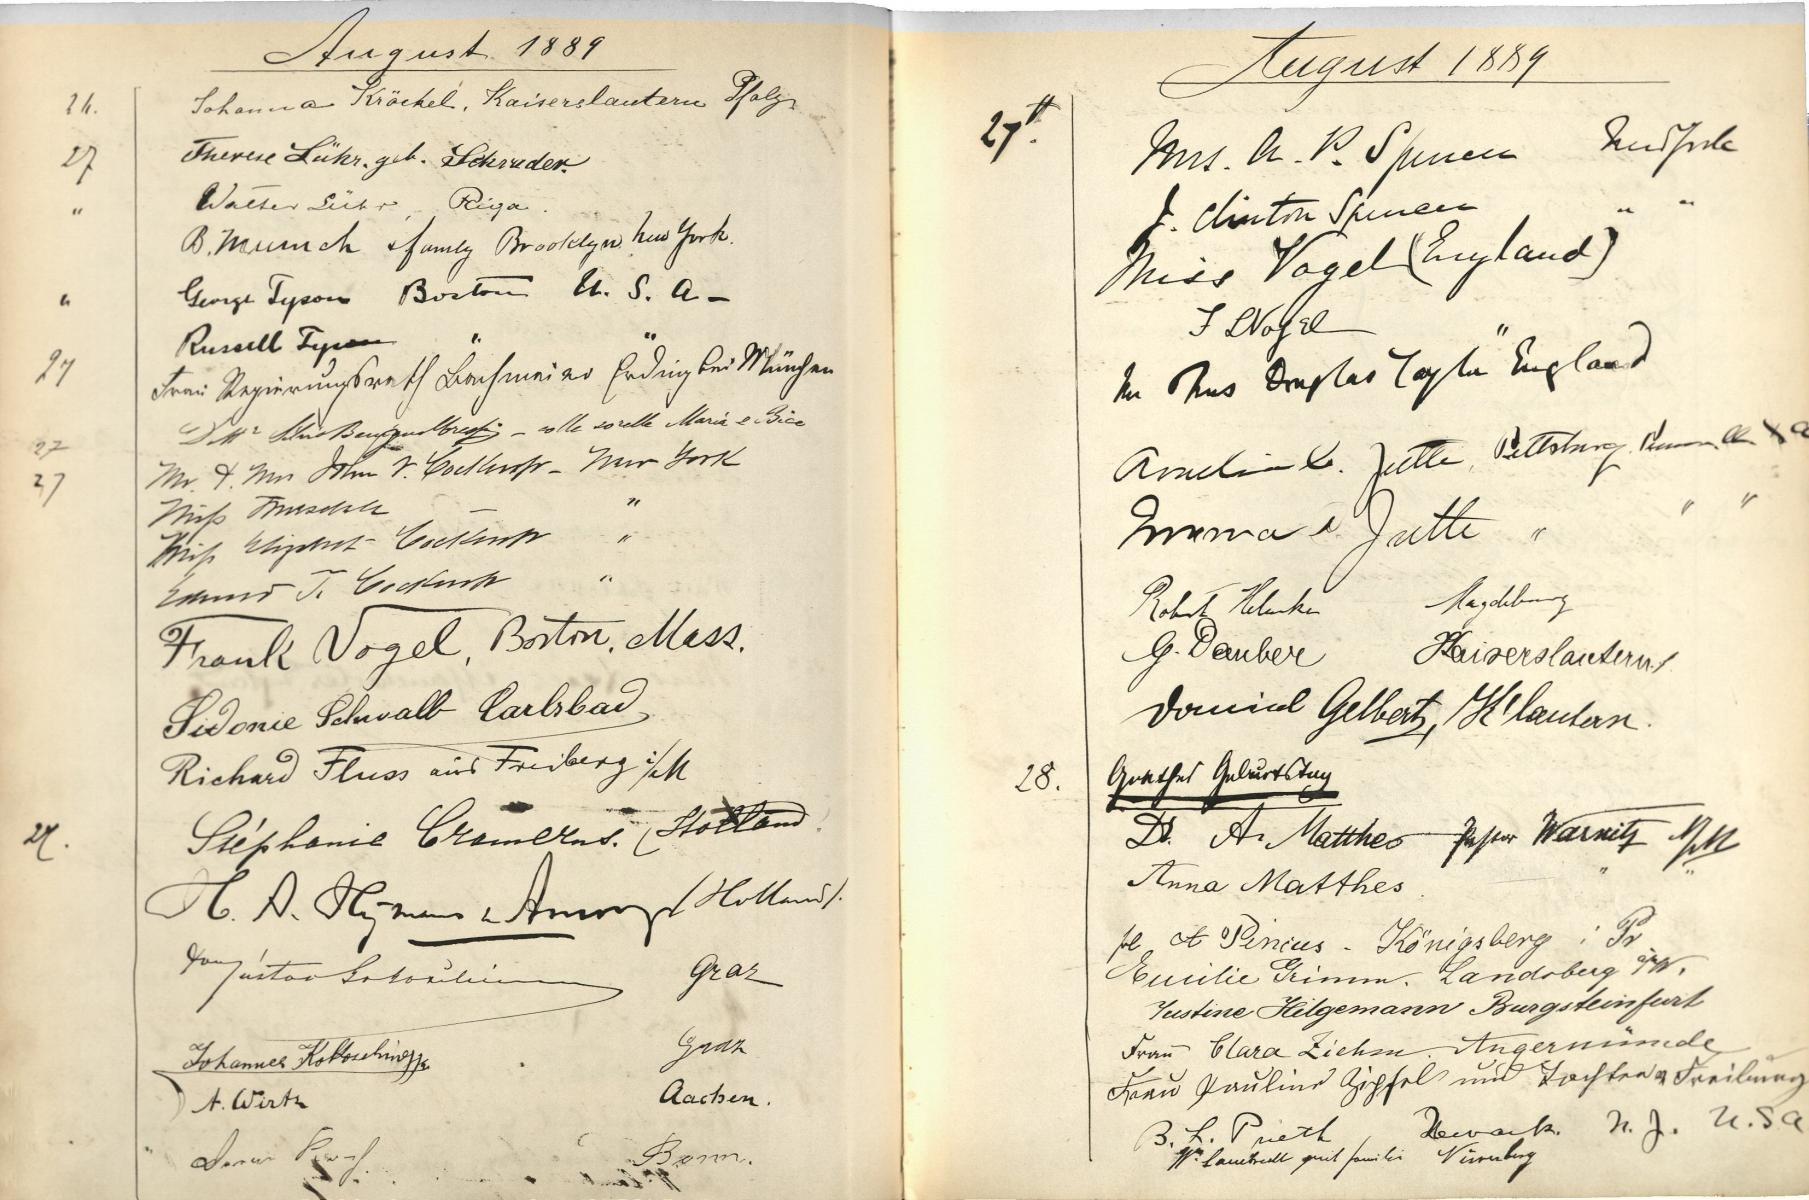 August 1889
26. Johanna Kröckel, Kaiserslautern Pfalz
27 Therese Lühr. geb. Schrader.
" Walter Lühr, Riga.
B. Munch & family Brooklyn New York.
" George Tyson Boston U. S. A -
Russell Tyson " "
27 Frau Regierungsrath Bachmeier Erding bei München
27 colle sorelle Maria e Bice
27 Mr. & Mrs John V. Cockcroft - New York
Miss "
Miss Elizabeth Cockcroft "
Edmund T. Cockcroft "
Frank Vogel, Boston, Mass.
Sidonie Schwalb Carlsbad
Richard Fluss aus Freiberg i/M
27. Stéphanie Cramerus. (Holland)
H. A. Heymans & (Holland).
Gustav Kokoschinegg Graz
Johannes Kokoschinegg Graz
A. Wirtz Aachen.
Bonn.
August 1889
27th. Mrs. A. P. Spencer New York
J. Clinton Spencer " "
Miss Vogel (England)
F L Vogel "
Mr Mrs Douglas Taylor England
Amelia C. Jutte, Pittsburg. Penna.
Emma A Jutte " " "
Robert Magdeburg
G. Dauber Kaiserslautern
Daniel Gelbert, K'lautern.
28. Goethes Geburtstag
Dr. A. Matthes Pastor Warnitz N/M
Anna Matthes " "
A Pincus - Königsberg i Pr
Emilie Grimm. Landsberg a/W.
Justine Hilgemann Burgsteinfurt
Frau Clara Ziehm Angermünde
Frau Pauline Zipfel und Tochter a Freiburg
B. L. Prieth Newark. N. J. U.S.A
familie Nürnberg